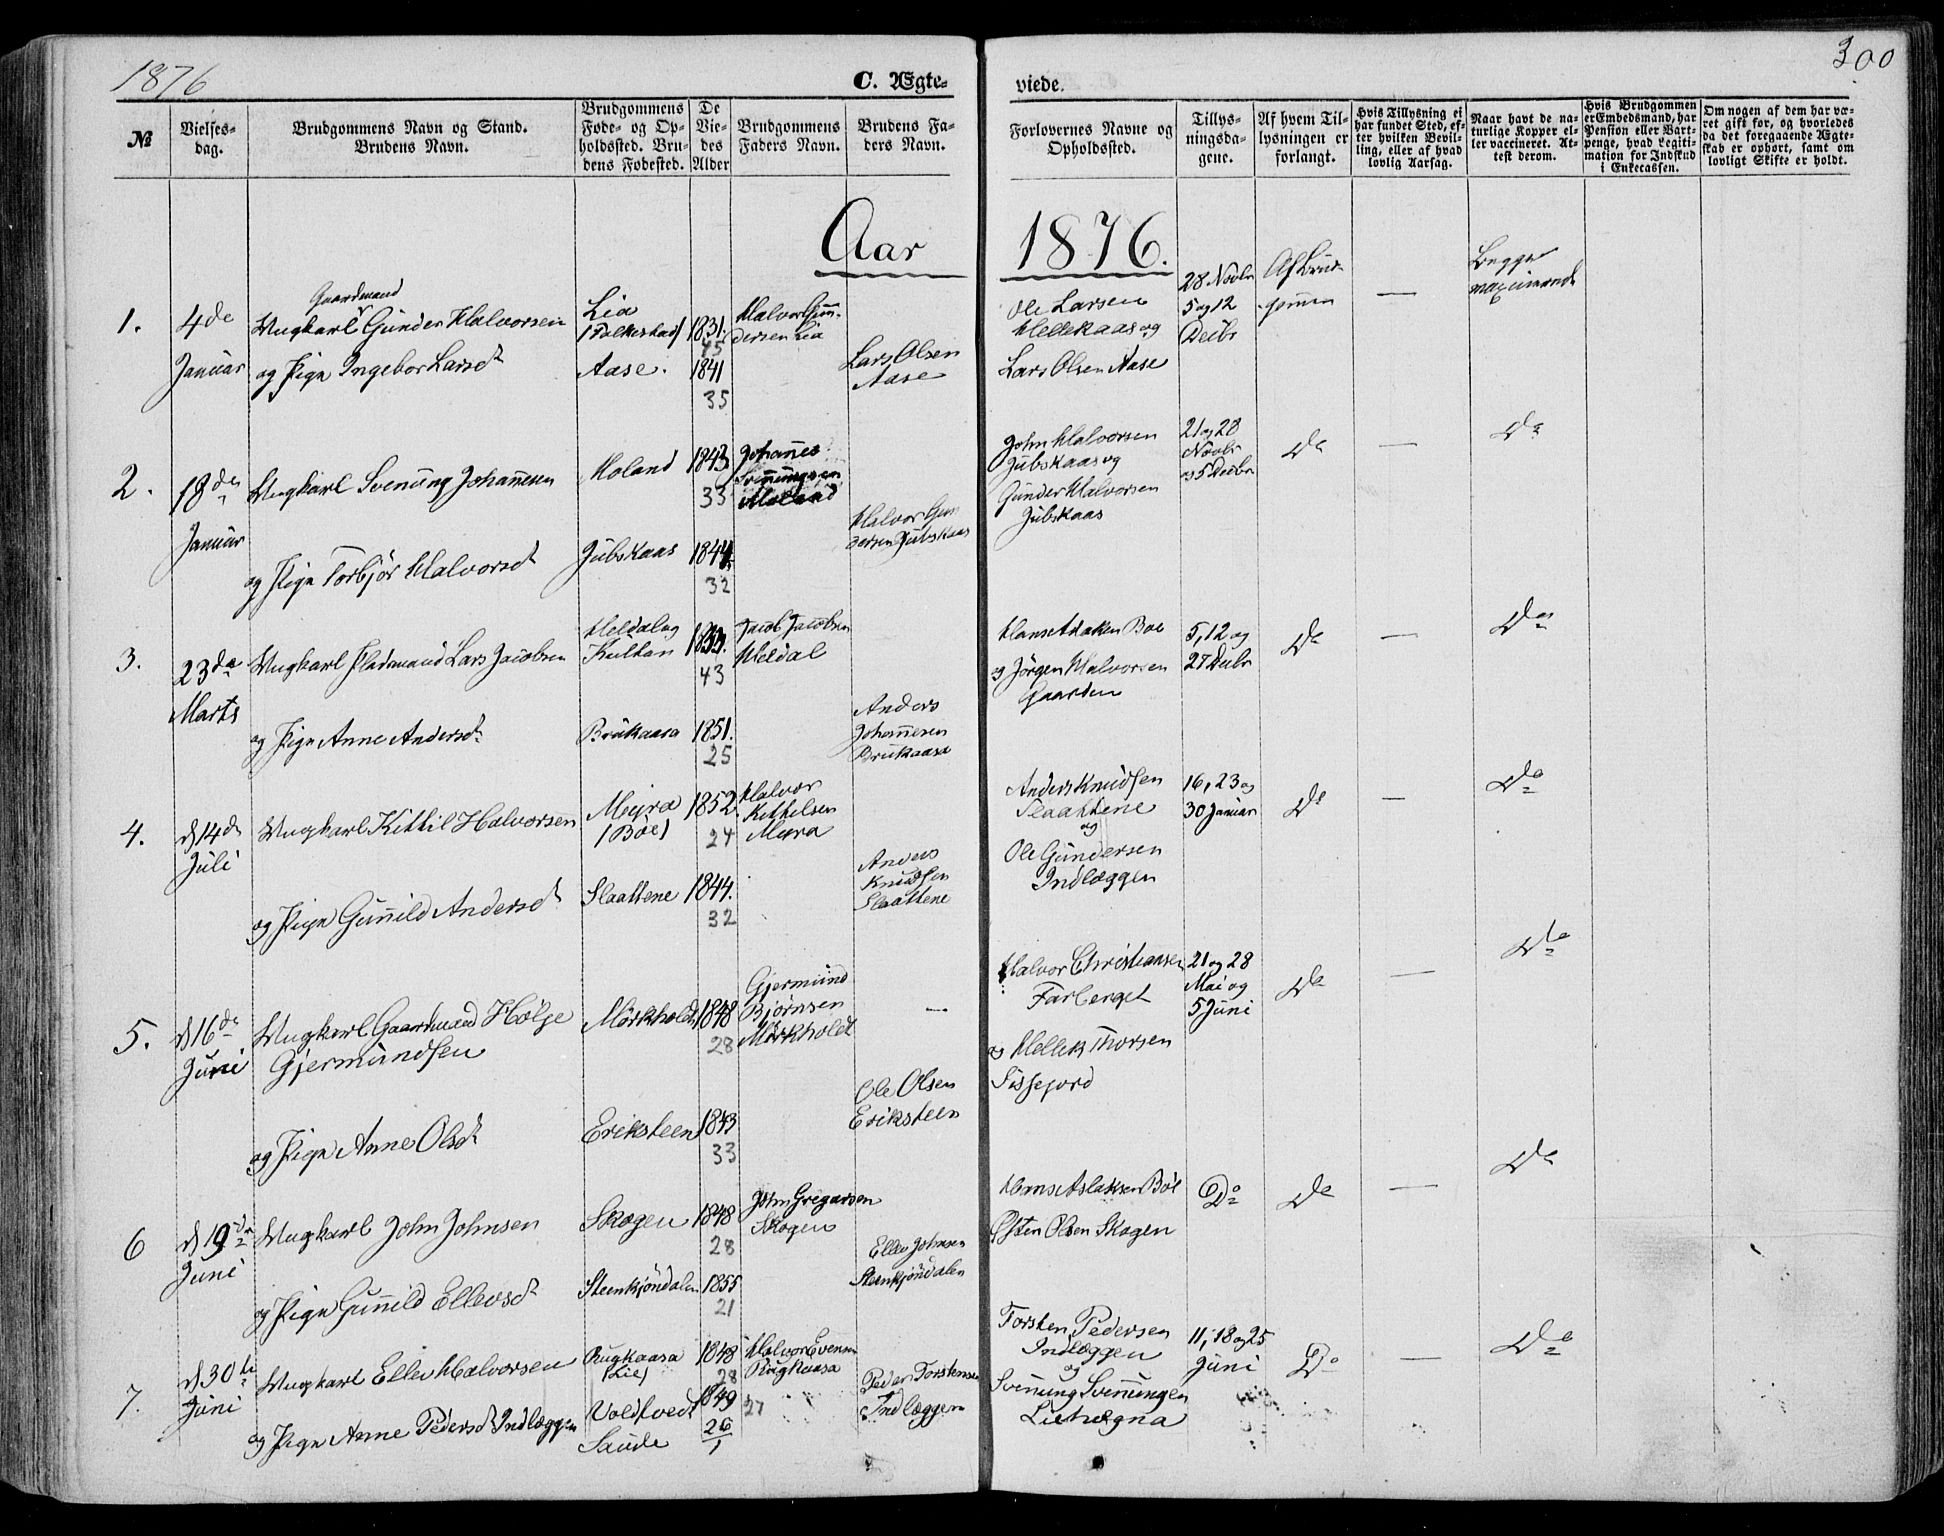 1876
C. Ægte-
viede.
300
№
Vielses-
dag.
Brudgommens Navn og Stand.
Brudens Navn.
Brudgommens
Føde- og Op-
holdssted. Bru-
dens Fødested.
De
Vie-
des
Alder
Brudgommens
Faders Navn.
Brudens Fa-
ders Navn.
Forlovernes Navne og
Opholdssted.
Tillys-
ningsda-
gene.
Af hvem Til-
lysningen er
forlangt.
Hvis Tillysning ei
har fundet Sted, ef-
ter hvilken Bevil-
ling, eller af hvad
lovlig Aarsag.
Naar havt de na-
turlige Kopper el-
ler vaccineret. At-
test derom.
Hvis Brudgommen
er Embedsmand, har
Pension eller Vart-
penge, hvad Legiti-
mation for Indskud
i Enkecassen.
Om nogen af dem har væ-
ret gift før, og hvorledes
da det foregaaende Ægte-
skab er ophørt, samt om
lovligt Skifte er holdt.
Aar 1876.
1.
4de
Januar
Gaardmand
Ungkarl Gunder Halvorsen
og Pige Ingebor Larsdt
Lia
(Folkestad)
Aase.
1831.
45
1841
35
Halvor Gun-
dersen Lia
Lars Olsen
Aase
Ole Larsen
Hellekaas og
Lars Olsen Aase
28 Novbr
5 og 12
Decbr
Af Brud-
gommen
—
Begge
vaccinerede
2.
18de
Januar
Ungkarl Svenung Johannesen
og Pige Torbjør Halvorsdt
Moland
Jubskaas
1843
33
1844.
32
Johannes
Svenungsen
Moland
Halvor Gun
dersen Jubskaas
John Halvorsen
Jubskaas og
Gunder Halvorsen
Jubskaas
21 og 28
Novbr
og 5 Decbr
Do
—
Do
3.
23de
Marts
Ungkarl Pladsmand Lars Jacobsen
og Pige Anne Andersdt
Heldal og
Kultan
Brukaasa
1833.
43
1851.
25
Jacob Jacobsen
Heldal
Anders
Johannesen
Brukaasa
Hans Aslaksen Bøe
og Jörgen Halvorsen
Gaarden
5, 12 og
27 Decbr
Do
—
Do
4.
d 14de
Juli
Ungkarl Kittil Halvorsen
og Pige Gunnild Andersdt
Myra
(Bøe)
Slaattene
1852.
24
1844.
32
Halvor
Kittelsen
Myra
Anders
Knudsen
Slaattene
Anders Knudsen
Slaattene
og
Ole Gundersen
Indlæggen
16, 23 og
30 Januar
Do
—
Do
5.
d 16de
Juni
Ungkarl Gaardmand Hølje
Gjermundsen
og Pige Anne Olsdt
Mørkholdt
Eriksteen
1848
28
1843
33
Gjermund
Bjørnsen
Mørkholdt
—
Ole Olsen
Eriksteen
Halvor Christiansen
Farberget
og Hellek Thorsen
Sissejord
21 og 28
Mai og
5 Juni
Do
—
Do
6
d 19de
Juni
Ungkarl John Johnsen
og Pige Gunnild Ellevsdt
Skogen
Steenkjøndalen
1848
28
1855
21
John Gregarsen
Skogen
Ellev Johnsen
Steenkjøndalen
Hans Aslaksen Bøe
Østen Olsen Skogen
Do
Do
—
Do
7.
d 30te
Juni
Ungkarl Ellev Halvorsen
og Pige Anne Pedersdt Indlæggen
Rugkaasa
(Lie)
Voldtvedt
Saude
1848
28
1849
27
26
1
Halvor Evensen
Rugkaasa
Peder Torstensen
Indlæggen
Torsten Pedersen
Indlæggen
og
Svenung Svenungen
Lietvegna
11, 18 og 25
Juni
Do
—
Do